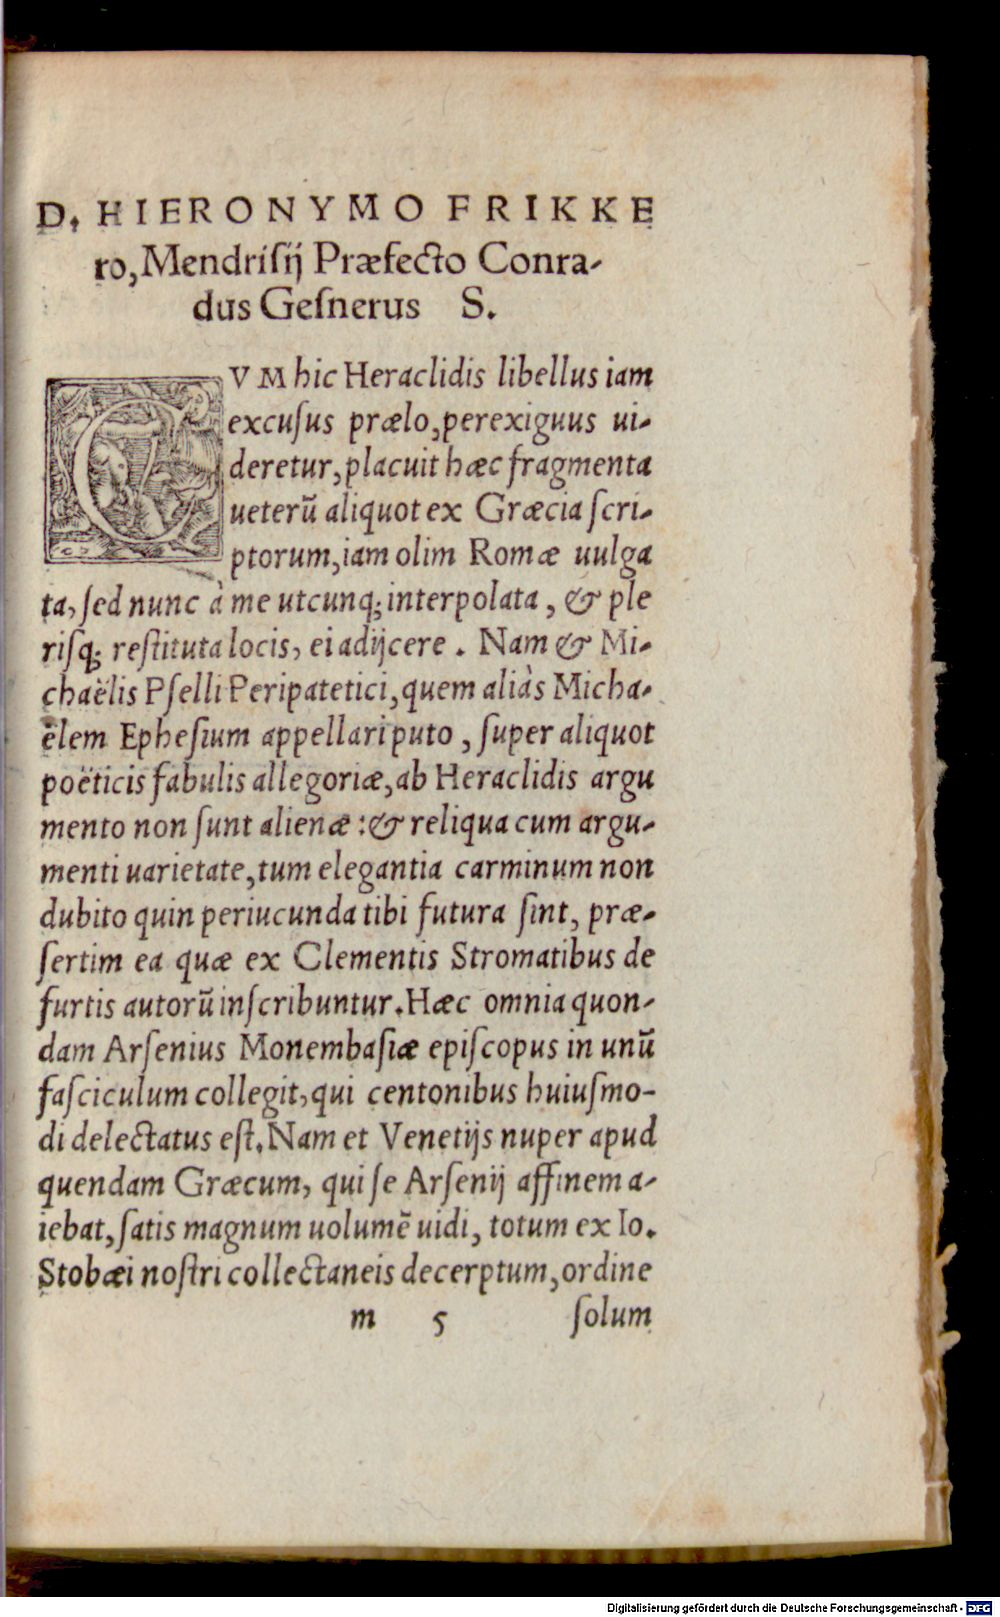 D. HIERONYMO FRIKKE
ro, Mendriſij Præfecto Conra-
dus Geſnerus S.
CVM hic Heraclidis libellus iam
excuſus prælo, perexiguus ui-
deretur, placuit hæc fragmenta
ueterū aliquot ex Græcia ſcri-
ptorum, iam olim Romæ uulga
ta, ſed nunc à me utcunq; interpolata, & ple
riſq; reſtituta locis, ei adijcere. Nam & Mi-
chaëlis Pſelli Peripatetici, quem aliàs Micha-
ëlem Epheſium appellari puto, ſuper aliquot
poëticis fabulis allegoriæ, ab Heraclidis argu
mento non ſunt alienæ: & reliqua cum argu-
menti uarietate, tum elegantia carminum non
dubito quin periucunda tibi futura ſint, præ-
ſertim ea quæ ex Clementis Stromatibus de
furtis autorū inſcribuntur. Hæc omnia quon-
dam Arſenius Monembaſiæ epiſcopus in unū
faſciculum collegit, qui centonibus huiuſmo-
di delectatus eſt. Nam et Venetijs nuper apud
quendam Græcum, qui ſe Arſenij affinem a-
iebat, ſatis magnum uolumē uidi, totum ex Io.
Stobæi noſtri collectaneis decerptum, ordine
m 5 ſolum
Digitalisierung gefördert durch die Deutsche Forschungsgemeinschaft - DFG